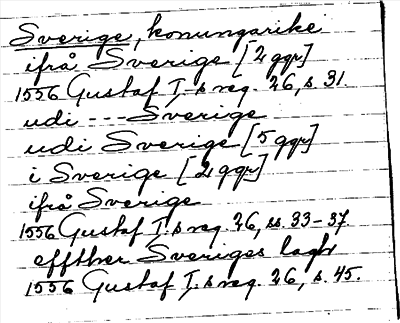 Sverige, konungarike
ifrå Sverige [2 ggr]
1556 Gustaf I:s reg. 26, s. 31.
udi --- Sverige
udi Sverige [5 ggr]
i Sverige [2 ggr]
ifrå Sverige
1556 Gustaf I:s reg. 26, ss. 33-37
effther Sveriges lagh
1556 Gustaf I:s reg. 26, s. 45.